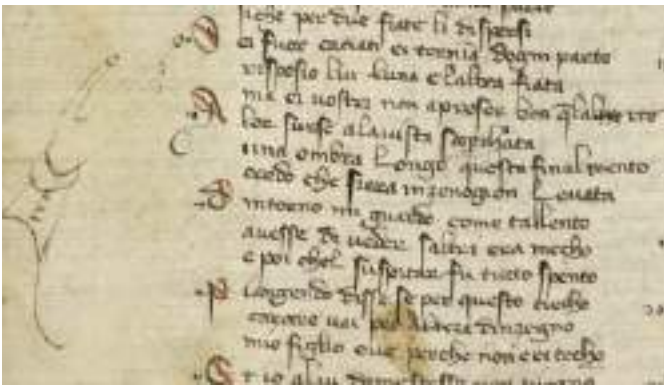 siche per due fiate li dispersi
S ei fuor caciati ei tornia dogni parte
risposio lui luna e laltra fiata
ma ei vostri non apreser ben qllarte
A lor surse ala vista scopchiata
una ombra longo questa final mento
credo che sera in zenogion levata
D intorno mi guardo come tallento
avesse di veder saltri era mecho
e poi chel suspiciar fu tutto spento
P iangendo disse se per questo ciecho
carcere vai per alteza dinzegno
mio figlio oue perche non e ei techo